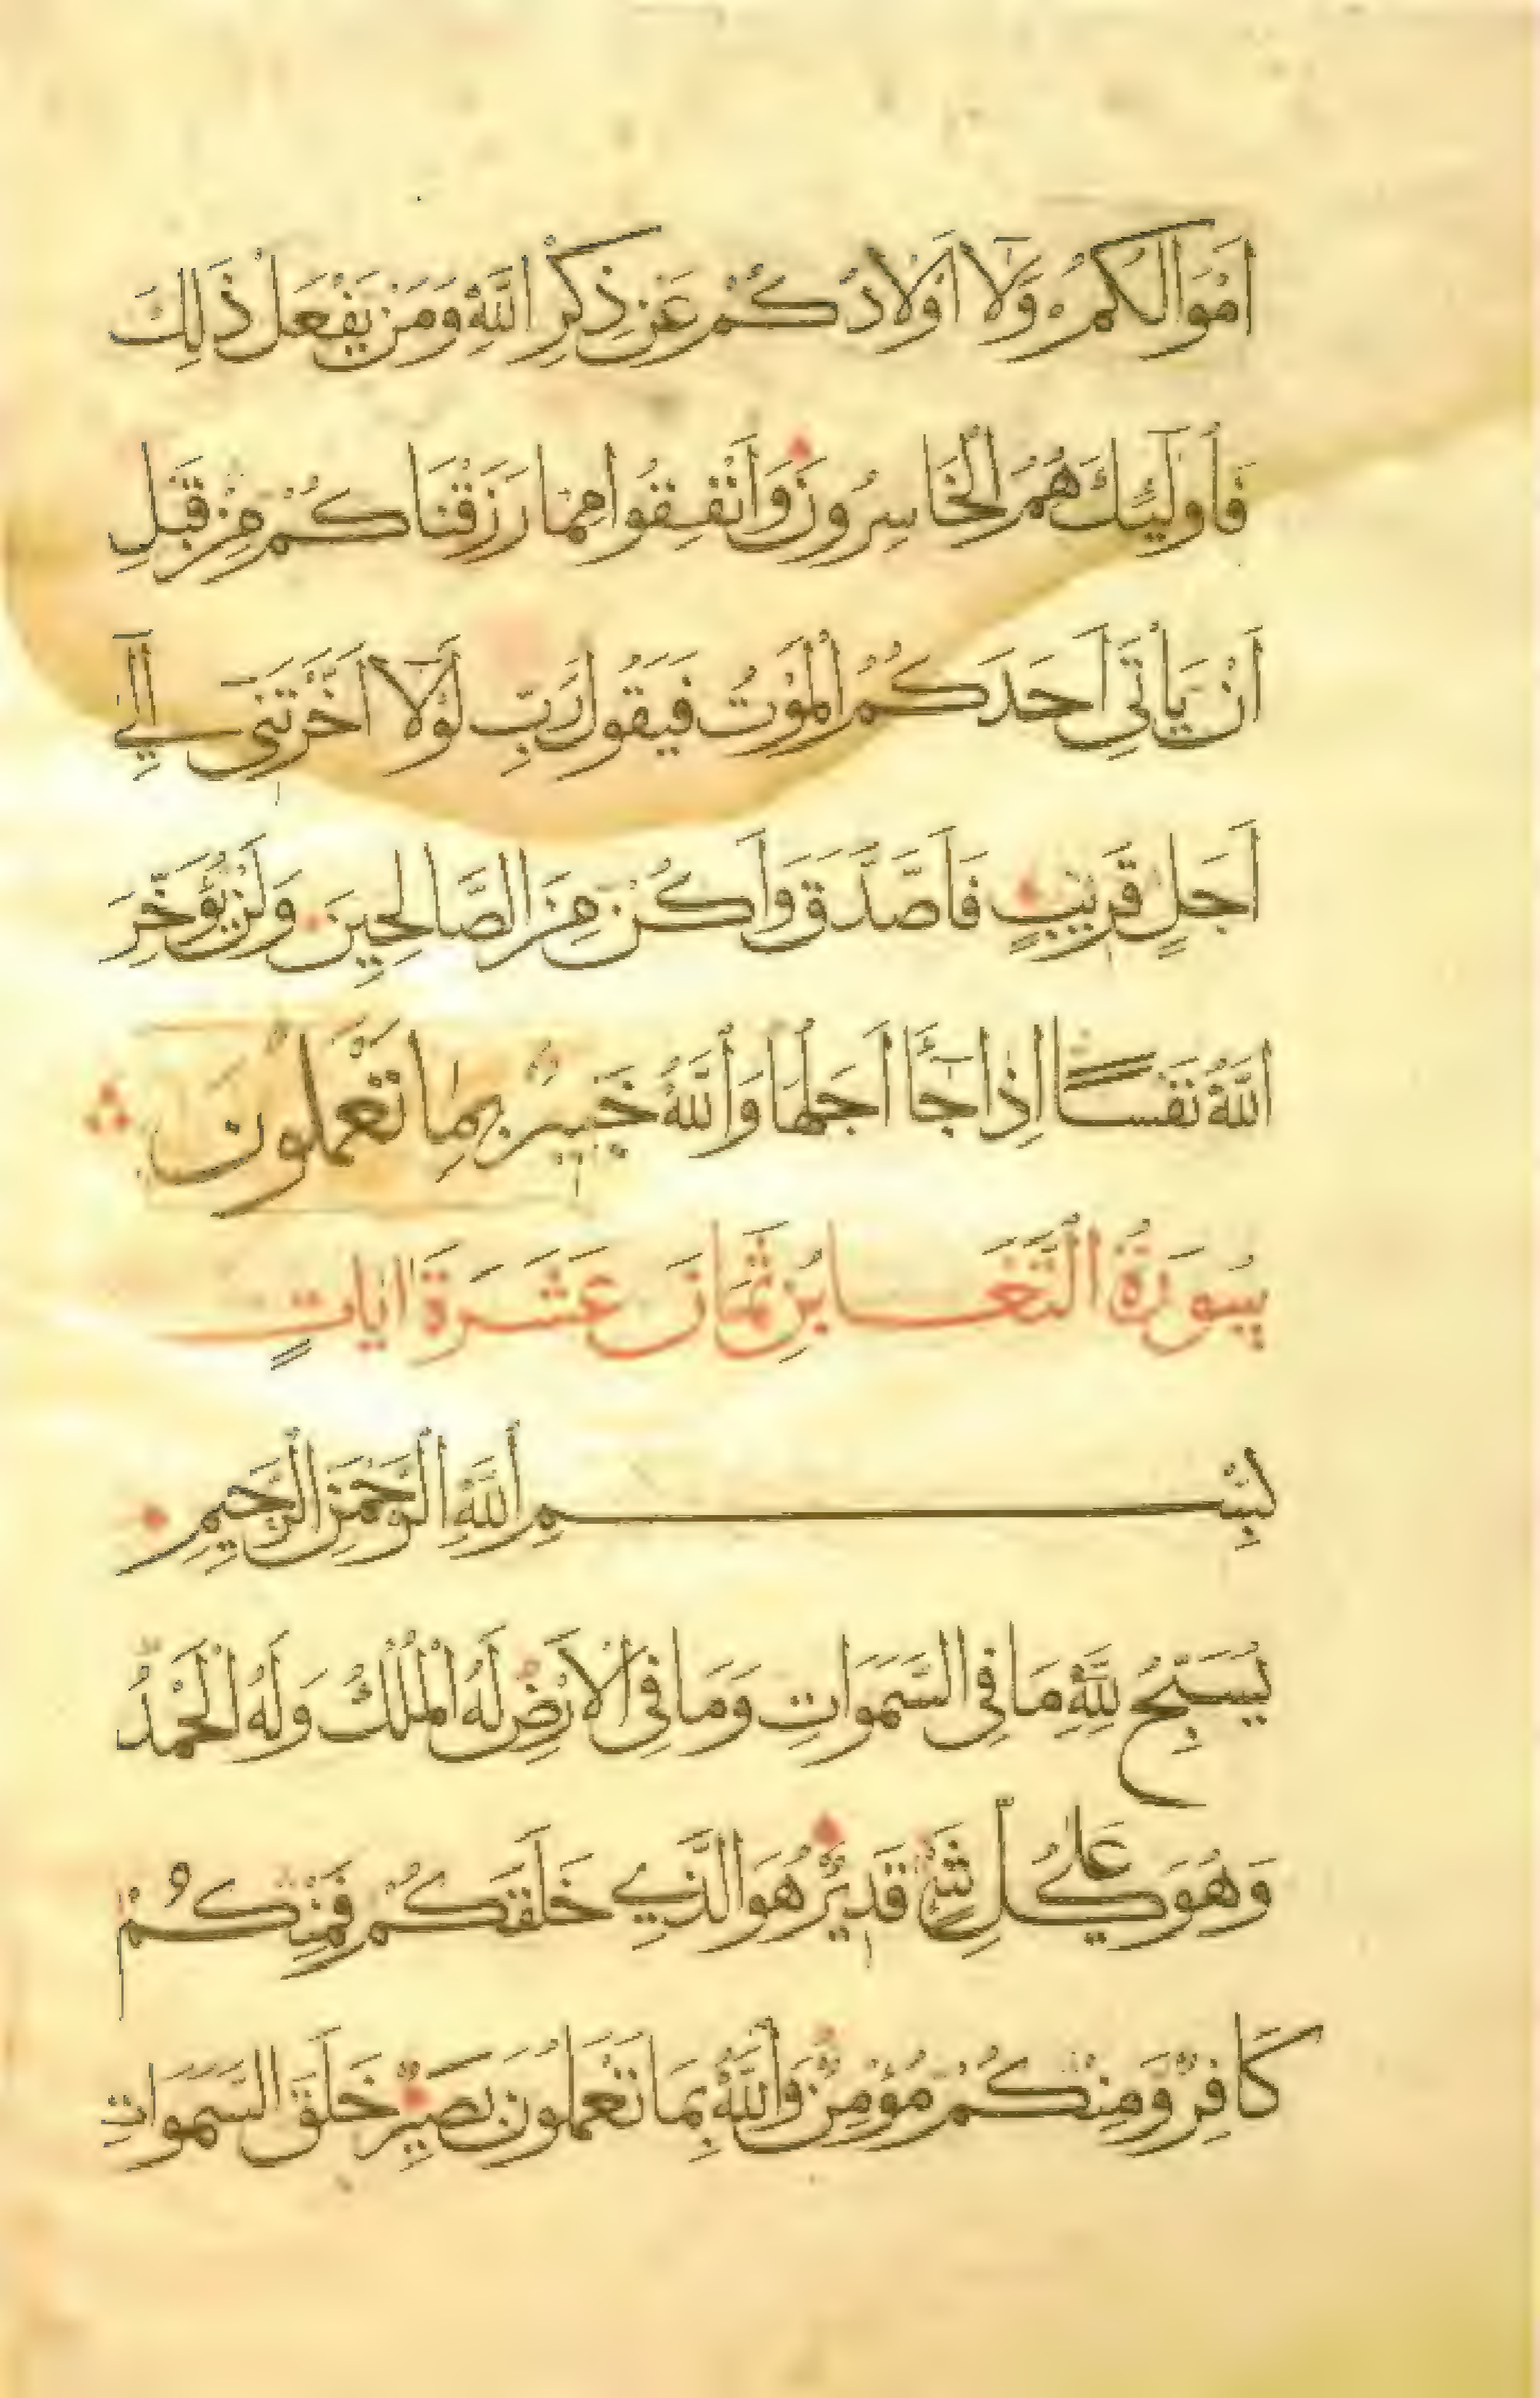 اَمْوَالُكُمْ وَلَا اَوْلَادُكُمْ عَنْ ذِكْرِ اللّٰهِ وَمَنْ يَفْعَلْ ذٰلِكَ
فَاُولٰئِكَ هُمُ الْخَاسِرُونَ وَاَنْفِقُوا مِمَّا رَزَقْنَاكُمْ مِنْ قَبْلِ
اَنْ يَاْتِيَ اَحَدَكُمُ الْمَوْتُ فَيَقُولَ رَبِّ لَوْلَا اَخَّرْتَنِي اِلٰى
اَجَلٍ قَرِيبٍ فَاَصَّدَّقَ وَاَكُنْ مِنَ الصَّالِحِينَ وَلَنْ يُؤَخِّرَ
اللّٰهُ نَفْسًا اِذَا جَآءَ اَجَلُهَا وَاللّٰهُ خَبِيرٌ بِمَا تَعْمَلُونَ
سُورَةُ التَّغَابُنِ ثَمَانَ عَشَرَةَ اٰيَاتٍ
بِسْمِ اللّٰهِ الرَّحْمٰنِ الرَّحِيمِ
يُسَبِّحُ لِلّٰهِ مَا فِي السَّمٰوَاتِ وَمَا فِي الْاَرْضِ لَهُ الْمُلْكُ وَلَهُ الْحَمْدُ
وَهُوَ عَلٰى كُلِّ شَيْءٍ قَدِيرٌ هُوَ الَّذِي خَلَقَكُمْ فَمِنْكُمْ
كَافِرٌ وَمِنْكُمْ مُؤْمِنٌ وَاللّٰهُ بِمَا تَعْمَلُونَ بَصِيرٌ خَلَقَ السَّمٰوَاتِ